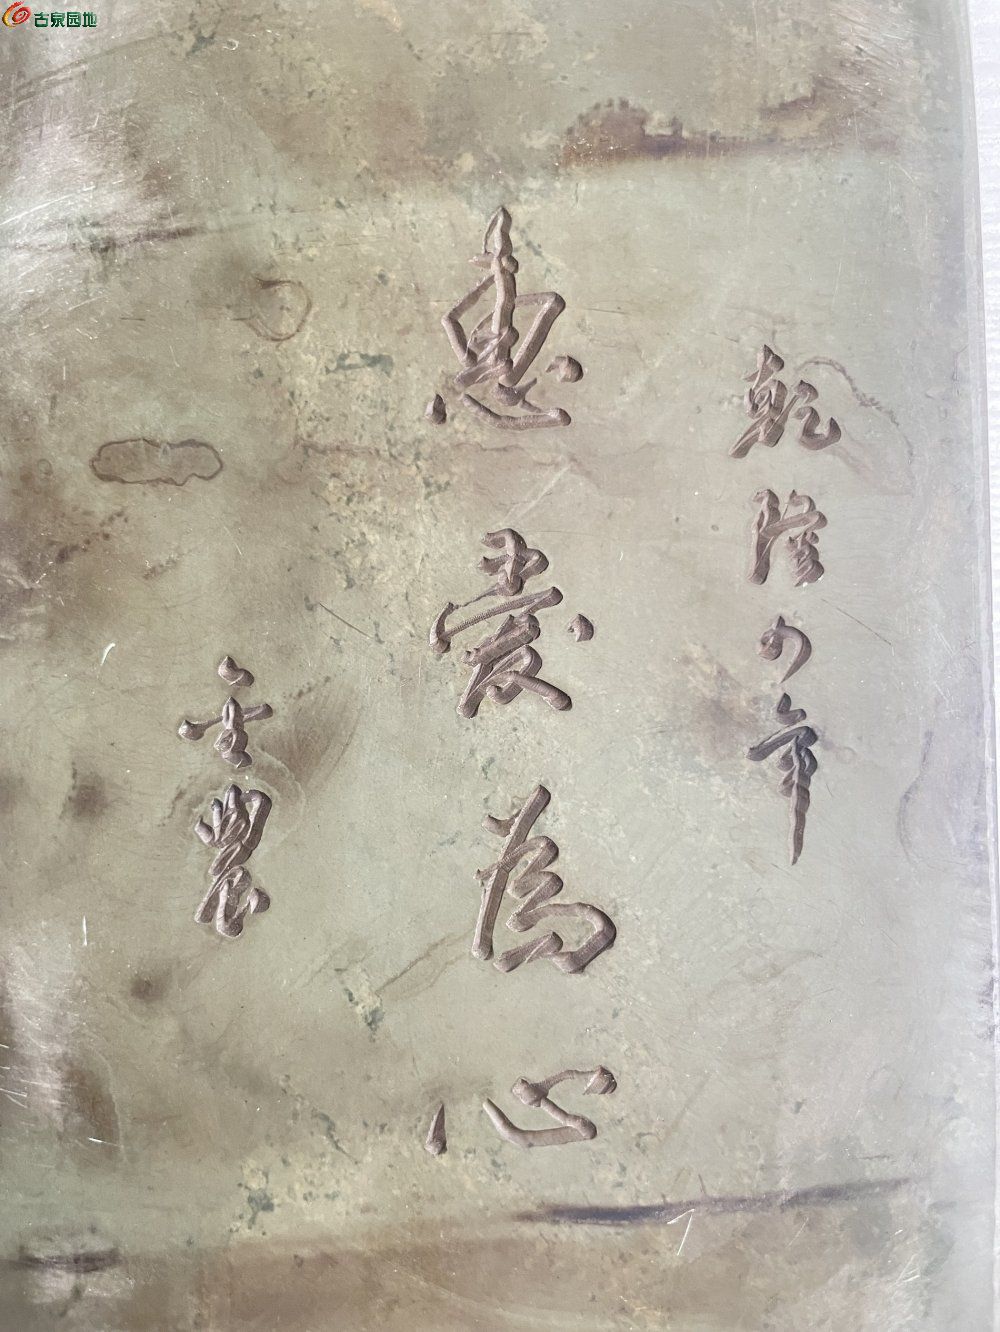 古泉园地
乾隆年
惠為心
金農